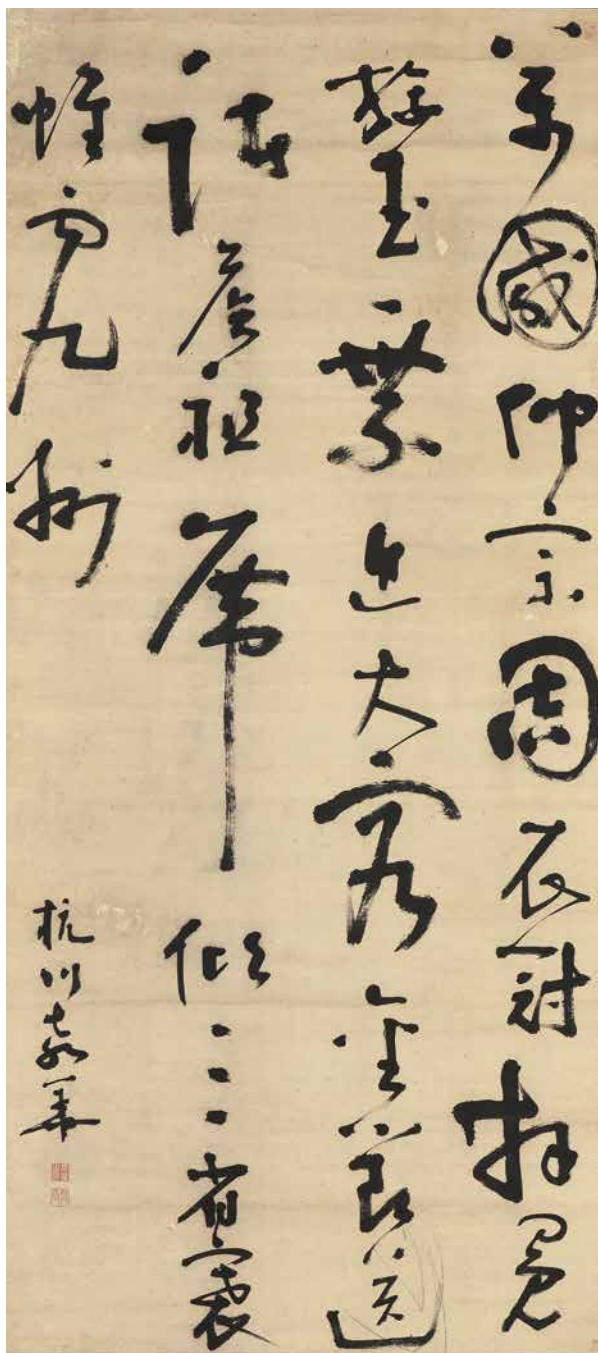 萬國仰宗周衣冠拜冕
旒玉乘迎大客金節送
諸侯祖席傾三省褰
帷向九州
杭川